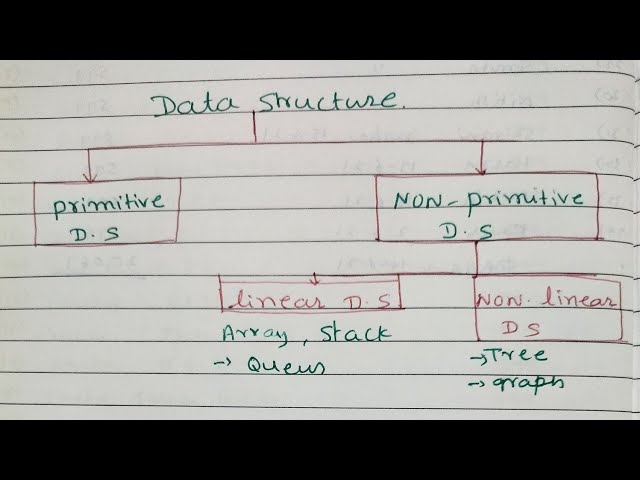 Data Structure.
primitive
D.S
NON-primitive
D.S
linear D.S
Array, Stack
→ Queus
NON-linear
DS
→Tree
→graph